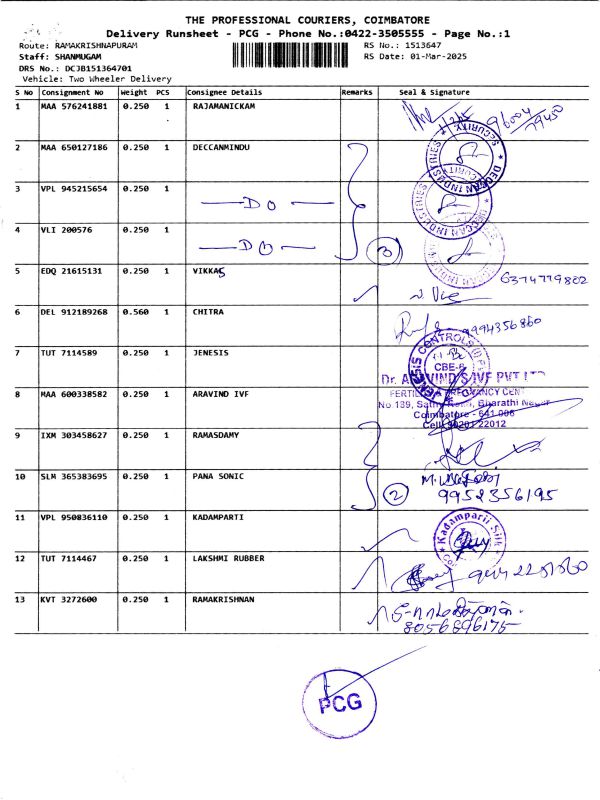 THE PROFESSIONAL COURIERS, COIMBATORE
Delivery Runsheet - PCG - Phone No.:0422-3505555 - Page No.:1
Route: RAMAKRISHNAPURAM
RS No.: 1513647
Staff: SHANMUGAM
RS Date: 01-Mar-2025
DRS No.: DCJB151364701
Vehicle: Two Wheeler Delivery
S No Consignment No Weight PCS Consignee Details Remarks Seal & Signature
1 MAA 576241881 0.250 1 RAJAMANICKAM
2 MAA 650127186 0.250 1 DECCANMINDU
3 VPL 945215654 0.250 1 DO
4 VLI 200576 0.250 1 DO
3
5 EDQ 21615131 0.250 1 VIKKAS
6374779802
6 DEL 912189268 0.560 1 CHITRA
9994356860
7 TUT 7114589 0.250 1 JENESIS
CBE-6
8 MAA 600338582 0.250 1 ARAVIND IVF
9 IXM 303458627 0.250 1 RAMASDAMY
10 SLM 365383695 0.250 1 PANA SONIC
2
9952356195
11 VPL 950836110 0.250 1 KADAMPARTI
Kadamparii Silk
12 TUT 7114467 0.250 1 LAKSHMI RUBBER
13 KVT 3272600 0.250 1 RAMAKRISHNAN
8056896175
PCG